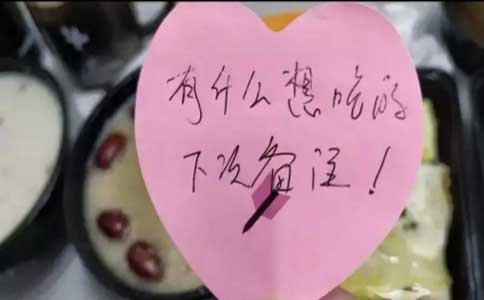 有什么想吃的
下次备注！